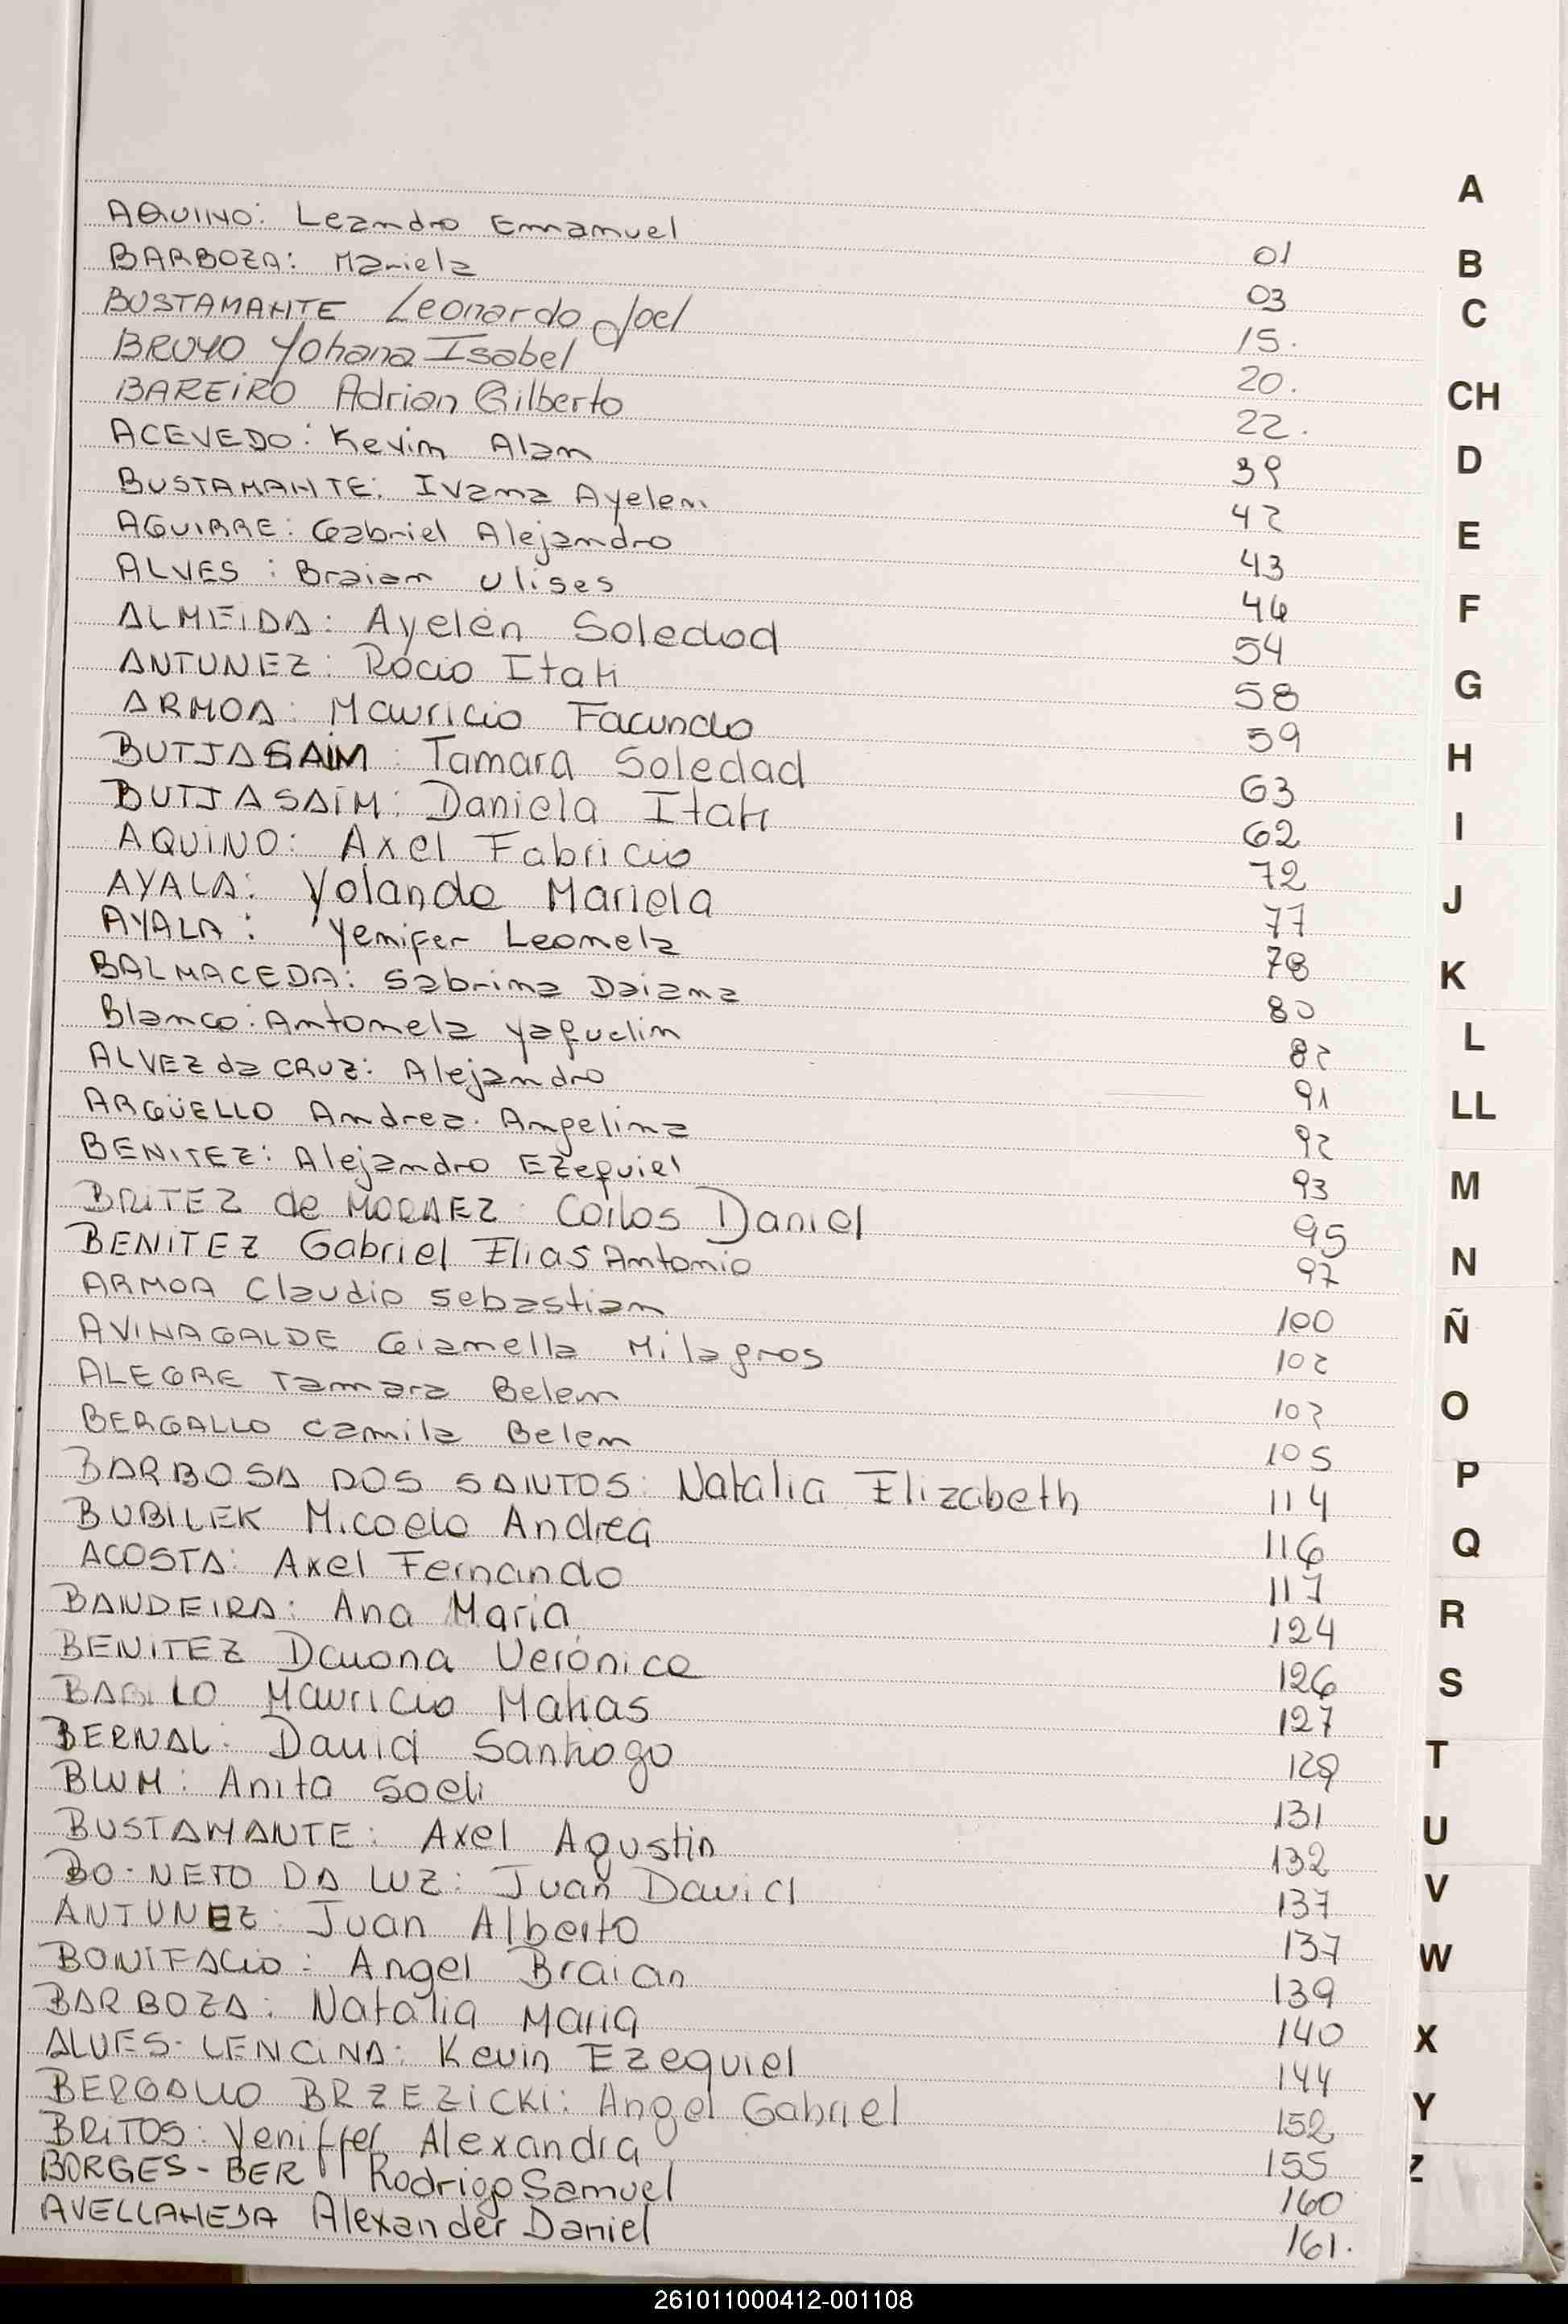 A
AQUINO: Leandro Emmanuel 01
B
BARBOZA: Mariela 03
C
BUSTAMANTE Leonardo Joel 15.
BRUYO Yohana Isabel 20.
CH
BAREIRO Adrian Gilberto 22.
ACEVEDO: Kevin Alan 39
D
BUSTAMANTE: Ivana Ayelen 42
E
AGUIRRE: Gabriel Alejandro 43
ALVES: Braian Ulises 46
F
ALMEIDA: Ayelén Soledad 54
ANTUNEZ: Rocio Itati 58
G
ARMOA: Mauricio Facundo 59
H
BUTJASAIM: Tamara Soledad 63
BUTJASAIM: Daniela Itati 62
I
AQUINO: Axel Fabricio 72
AYALA: Yolanda Mariela 77
J
AYALA: Yenifer Leonela 78
K
BALMACEDA: Sabrina Daiana 80
Blanco: Antonela Yaquelin 82
L
ALVEZ da CRUZ: Alejandro 91
LL
ARGÜELLO Andrea Angelina 92
BENITEZ: Alejandro Ezequiel 93
M
BRITEZ de MORAEZ: Carlos Daniel 95
BENITEZ Gabriel Elias Antonio 97
N
ARMOA Claudio Sebastian 100
Ñ
AVINAGALDE Gianella Milagros 102
ALEGRE Tamara Belen
O
BERGALLO Camila Belen 105
BARBOSA DOS SANTOS: Natalia Elizabeth 114
P
BUBILEK Micaela Andrea 116
Q
ACOSTA: Axel Fernando 117
BANDEIRA: Ana Maria 124
R
BENITEZ Daiona Verónica 126
S
Mauricio Matias 127
BERNAL: David Santiago
T
BLUM: Anita Soeli 131
U
BUSTAMANTE: Axel Agustin 132
BO-NETO DA LUZ: Juan David 137
V
ANTUNEZ: Juan Alberto 137
W
BONIFACIO: Angel Braian 139
BARBOZA: Natalia Maria 140
X
ALVES-LENCINA: Kevin Ezequiel 144
Y
BERGALLO BRZEZICKI: Angel Gabriel 152
BRITOS: Yeniffer Alexandra 155
Z
BORGES-BER Rodrigo Samuel 160
AVELLANEDA Alexander Daniel 161.
261011000412-001108